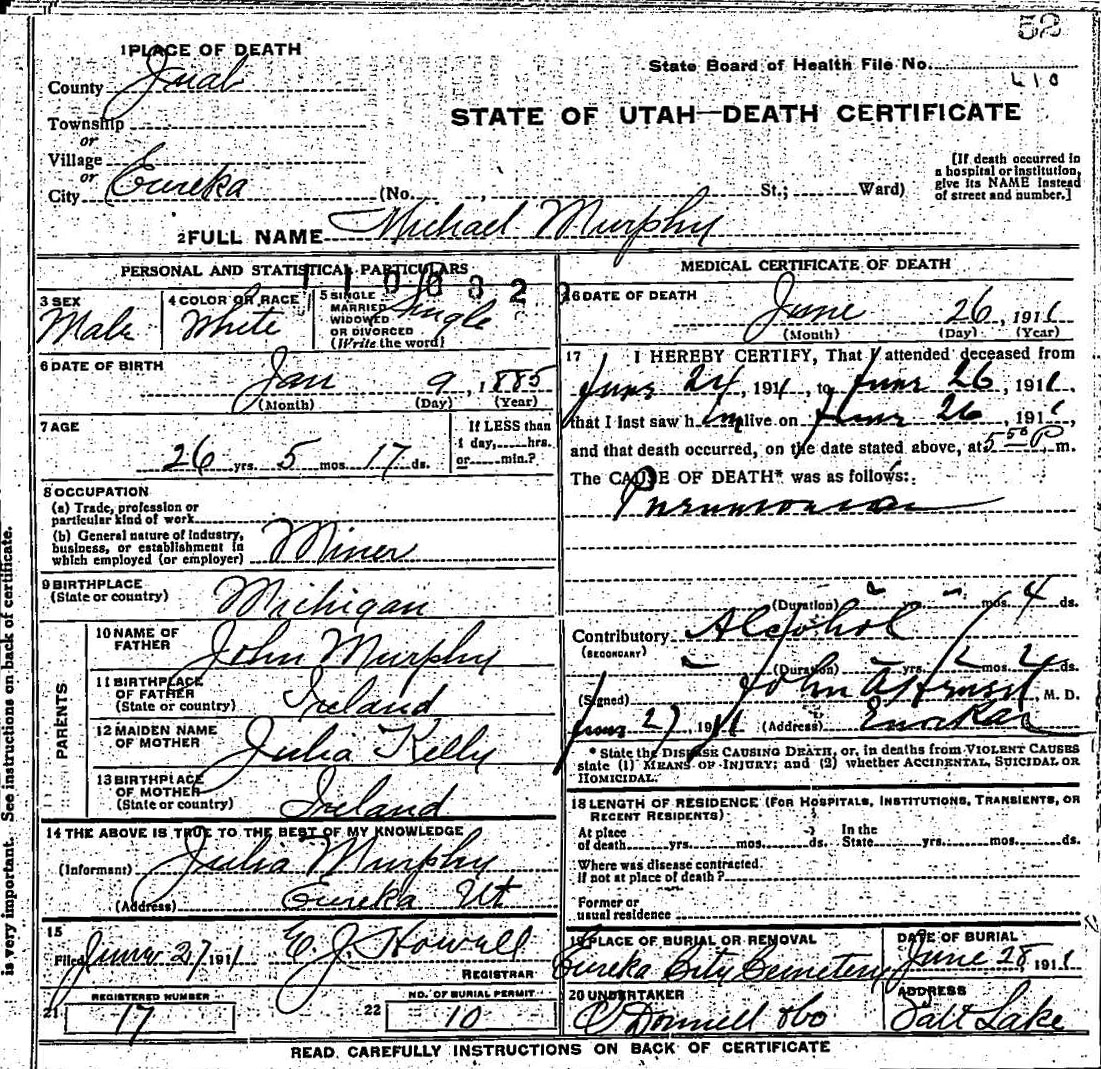 52
1 PLACE OF DEATH
County Juab
State Board of Health File No.
Township
or
Village
or
City Eureka
STATE OF UTAH—DEATH CERTIFICATE
(No. , St.; Ward)
[If death occurred in
a hospital or institution,
give its NAME instead
of street and number.]
2 FULL NAME Michael Murphy
PERSONAL AND STATISTICAL PARTICULARS
3 SEX
Male
4 COLOR OR RACE
White
5 SINGLE
MARRIED
WIDOWED
OR DIVORCED
(Write the word)
Single
6 DATE OF BIRTH
Jan 9, 1885
(Month) (Day) (Year)
7 AGE
26 yrs. 5 mos. 17 ds.
If LESS than
1 day, hrs.
or min.?
8 OCCUPATION
(a) Trade, profession or
particular kind of work
(b) General nature of industry,
business, or establishment in
which employed (or employer) Miner
9 BIRTHPLACE
(State or country) Michigan
PARENTS
10 NAME OF
FATHER John Murphy
11 BIRTHPLACE
OF FATHER
(State or country) Ireland
12 MAIDEN NAME
OF MOTHER Julia Kelly
13 BIRTHPLACE
OF MOTHER
(State or country) Ireland
14 THE ABOVE IS TRUE TO THE BEST OF MY KNOWLEDGE
(Informant) Julia Murphy
(Address) Eureka Ut
15
Filed June 27 1911 E. J. Howell
REGISTRAR
21 REGISTERED NUMBER
17
22 NO. OF BURIAL PERMIT
10
MEDICAL CERTIFICATE OF DEATH
16 DATE OF DEATH
June 26, 1911
(Month) (Day) (Year)
17 I HEREBY CERTIFY, That I attended deceased from
June 24, 1911, to June 26, 1911,
that I last saw h im alive on June 26, 1911
and that death occurred, on the date stated above, at 5 50 P m.
The CAUSE OF DEATH* was as follows:
Pneumonia
(Duration) mos. 4 ds.
Contributory Alcohol
(SECONDARY)
(Duration) yrs. mos. ds.
(Signed) John M. D.
June 27 1911 (Address) Eureka
* State the DISEASE CAUSING DEATH, or, in deaths from VIOLENT CAUSES
state (1) MEANS OF INJURY; and (2) whether ACCIDENTAL, SUICIDAL OR
HOMICIDAL.
18 LENGTH OF RESIDENCE (FOR HOSPITALS, INSTITUTIONS, TRANSIENTS, OR
RECENT RESIDENTS)
At place
of death yrs. mos. ds.
In the
State yrs. mos. ds.
Where was disease contracted
if not at place of death?
Former or
usual residence
19 PLACE OF BURIAL OR REMOVAL
Eureka City Cemetery
DATE OF BURIAL
June 28, 1911
20 UNDERTAKER
O'Donnell & Co
ADDRESS
Salt Lake
READ CAREFULLY INSTRUCTIONS ON BACK OF CERTIFICATE
is very important. See instructions on back of certificate.